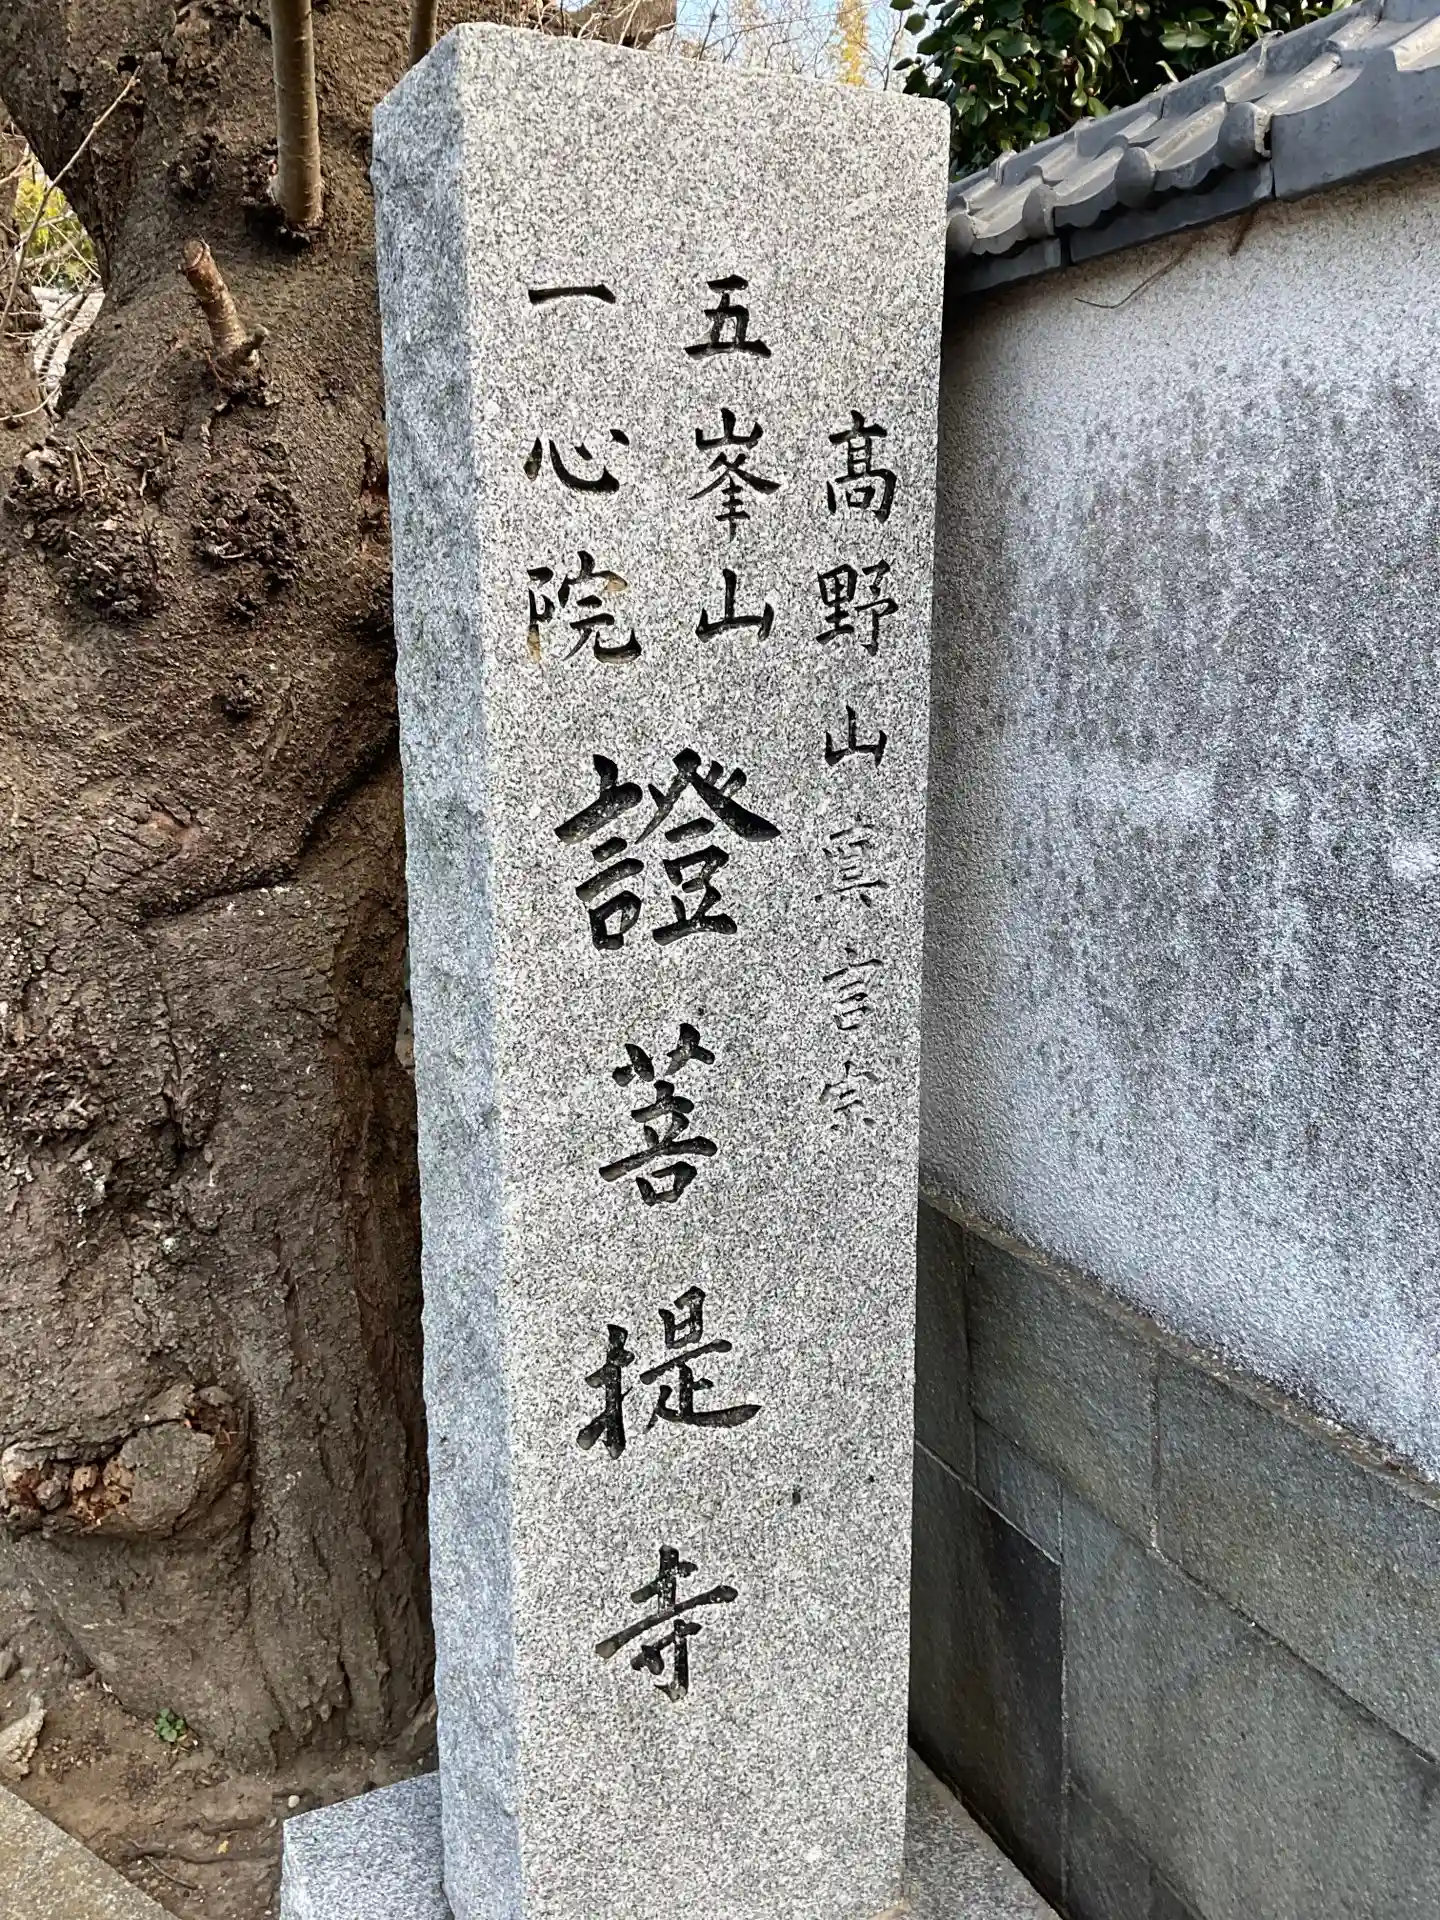 高野山眞言宗
五峯山
一心院
證菩提寺